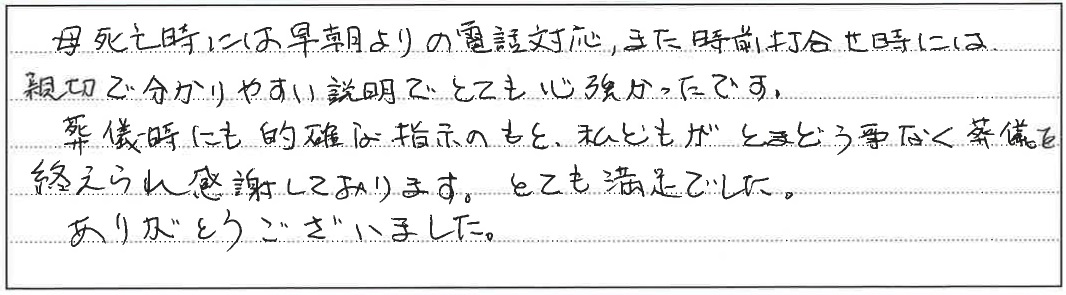 母死亡時には早朝よりの電話対応,また時前打合せ時には、
親切で分かりやすい説明でとても心強かったです。
葬儀時にも的確な指示のもと、私どもがとまどう事なく葬儀を
終えられ感謝しております。とても満足でした。
ありがとうございました。